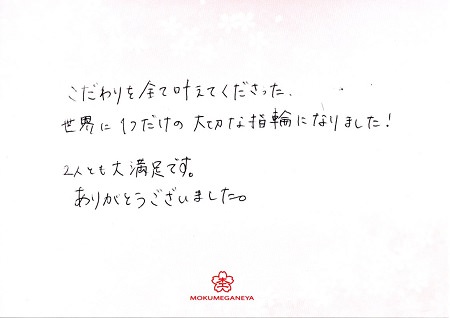 こだわりを全て叶えてくださった、
世界に1つだけの大切な指輪になりました!
2人とも大満足です。
ありがとうございました。
MOKUMEGANEYA